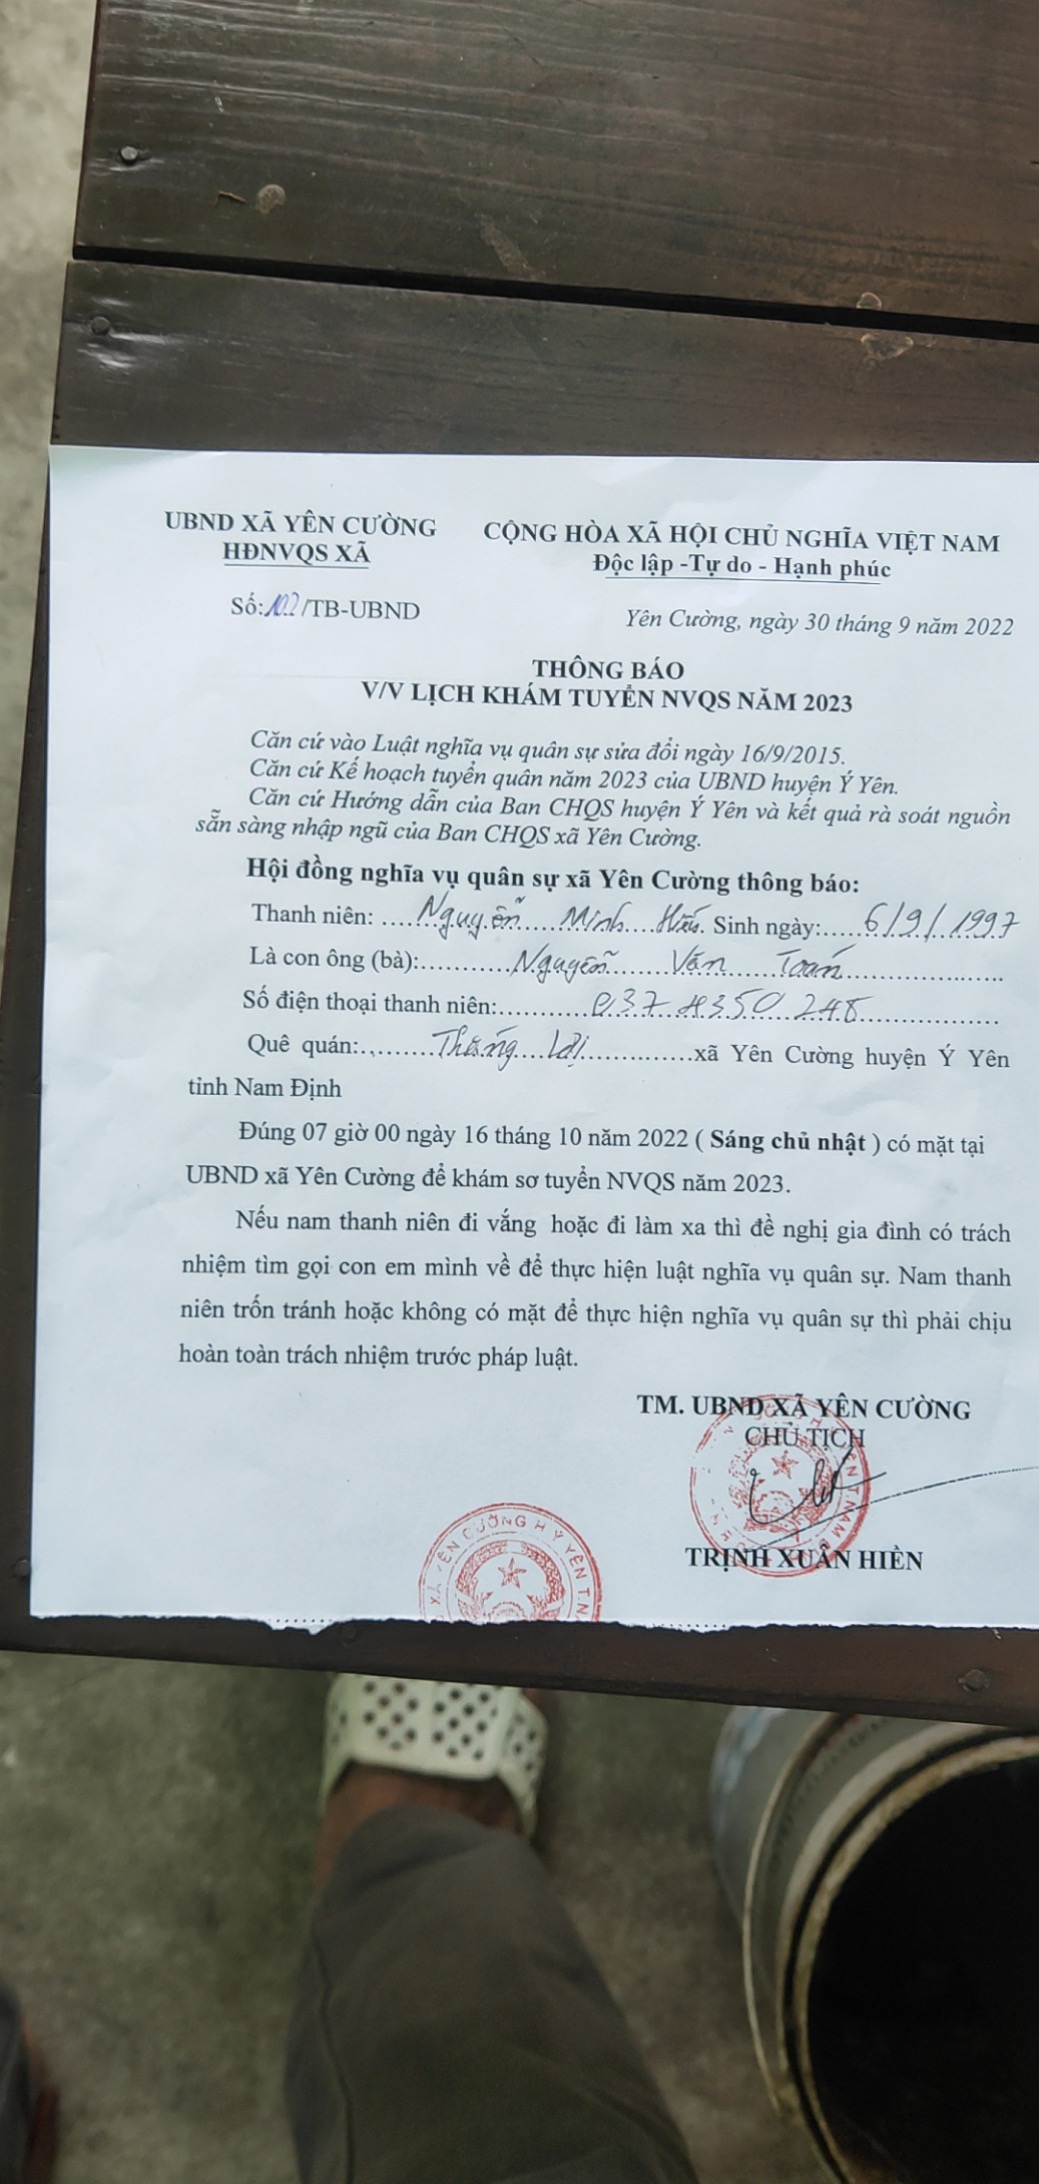 UBND XÃ YÊN CƯỜNG
HĐNVQS XÃ
CỘNG HÒA XÃ HỘI CHỦ NGHĨA VIỆT NAM
Độc lập -Tự do - Hạnh phúc
Số:102/TB-UBND
Yên Cường, ngày 30 tháng 9 năm 2022
THÔNG BÁO
V/V LỊCH KHÁM TUYỂN NVQS NĂM 2023
Căn cứ vào Luật nghĩa vụ quân sự sửa đổi ngày 16/9/2015.
Căn cứ Kế hoạch tuyển quân năm 2023 của UBND huyện Ý Yên.
Căn cứ Hướng dẫn của Ban CHQS huyện Ý Yên và kết quả rà soát nguồn
sẵn sàng nhập ngũ của Ban CHQS xã Yên Cường.
Hội đồng nghĩa vụ quân sự xã Yên Cường thông báo:
Thanh niên: ....Nguyễn Minh Hiếu. Sinh ngày:.....6/9/1997
Là con ông (bà):...........Nguyễn Văn Toán
Số điện thoại thanh niên:...........
Quê quán:.........Thắng Lợi.............xã Yên Cường huyện Ý Yên
tỉnh Nam Định
Đúng 07 giờ 00 ngày 16 tháng 10 năm 2022 ( Sáng chủ nhật ) có mặt tại
UBND xã Yên Cường để khám sơ tuyển NVQS năm 2023.
Nếu nam thanh niên đi vắng hoặc đi làm xa thì đề nghị gia đình có trách
nhiệm tìm gọi con em mình về để thực hiện luật nghĩa vụ quân sự. Nam thanh
niên trốn tránh hoặc không có mặt để thực hiện nghĩa vụ quân sự thì phải chịu
hoàn toàn trách nhiệm trước pháp luật.
TM. UBND XÃ YÊN CƯỜNG
CHỦ TỊCH
TRỊNH XUÂN HIỀN
XÃ YÊN CƯỜNG H Ý YÊN T.N